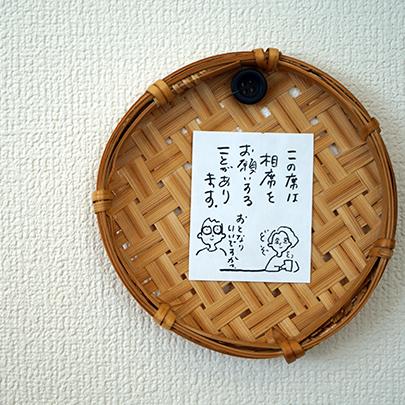 この席は
相席を
お願いする
ことがあり
ます。
おとなり
いいですか。
どうぞ